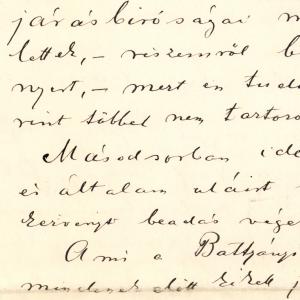 járásbiróságai
lettek, – viszemről
nyert, – mert en tud
vint többel nem tartozo
Másodsorban ide
és általam aláirt
kervényt beadás vége
Ami a Batthány
mindenek előtt